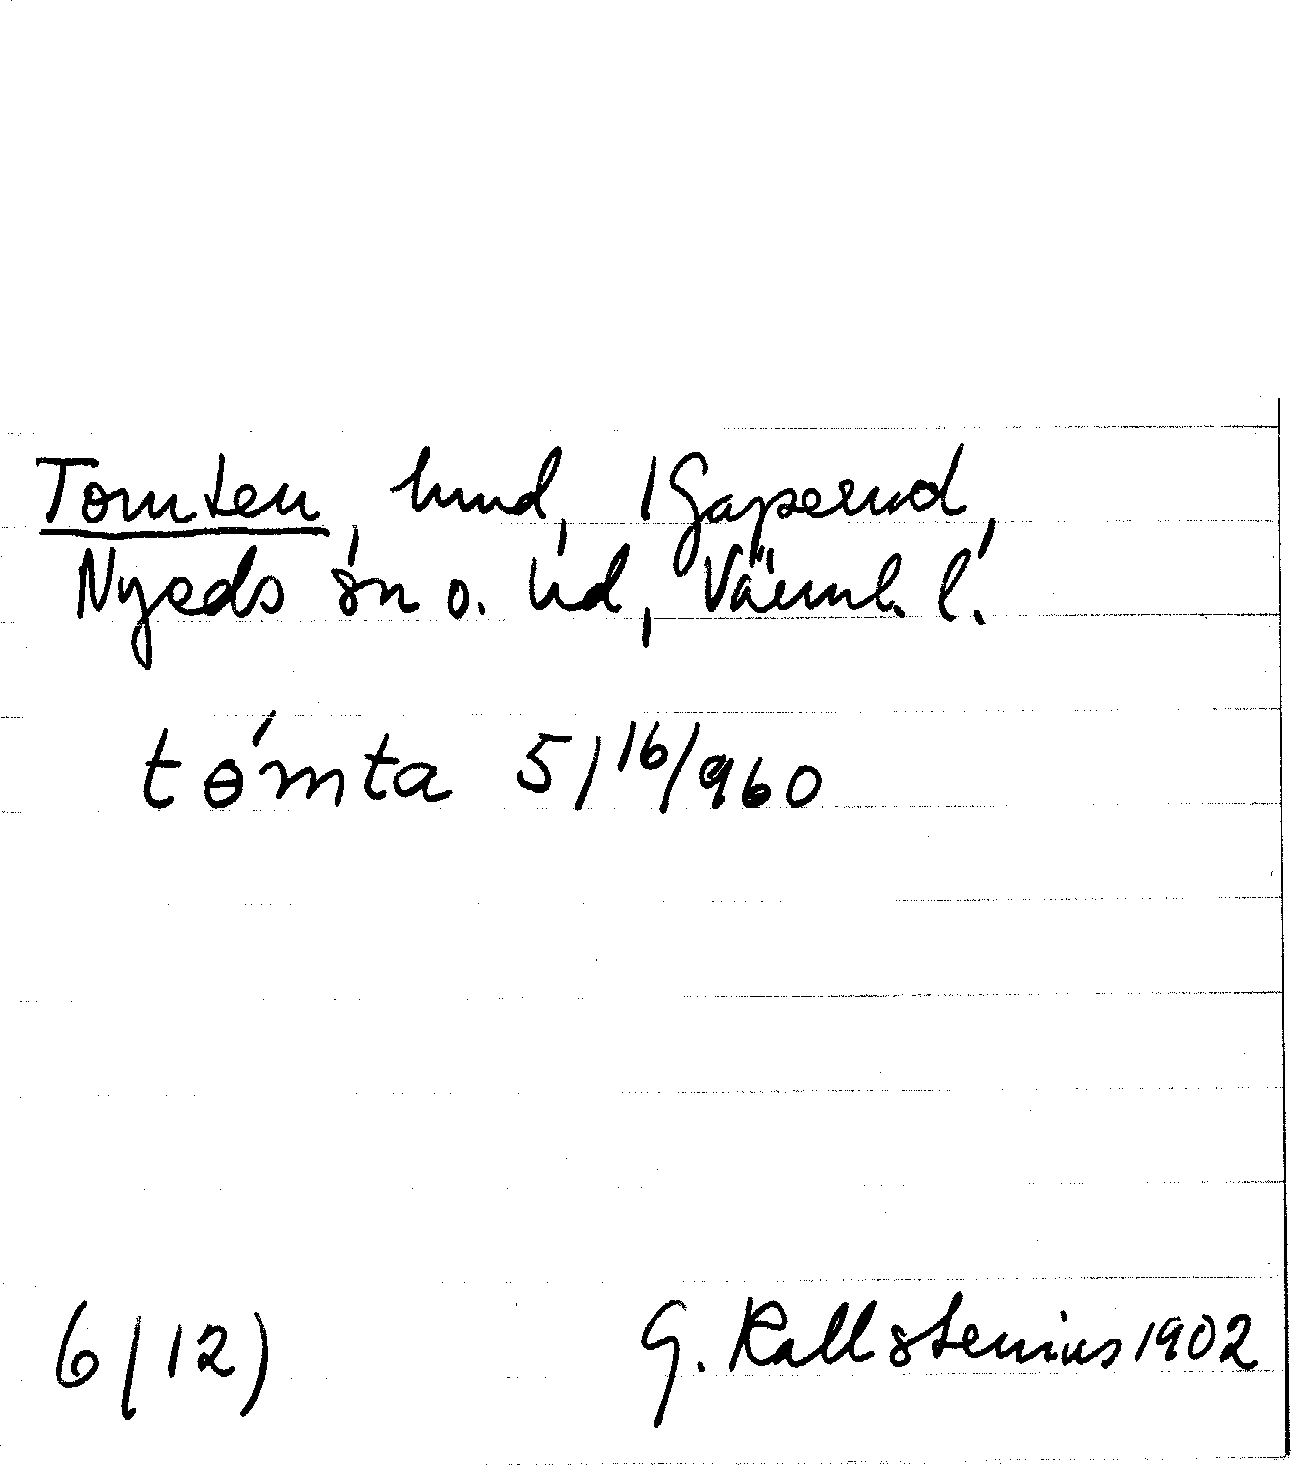 Tomten, hmd, 1 Gaperud,
Nyeds sn o. hd, Värml. l.
tɵ́mta 5/16/960
6/12) G. Kallstenius 1902